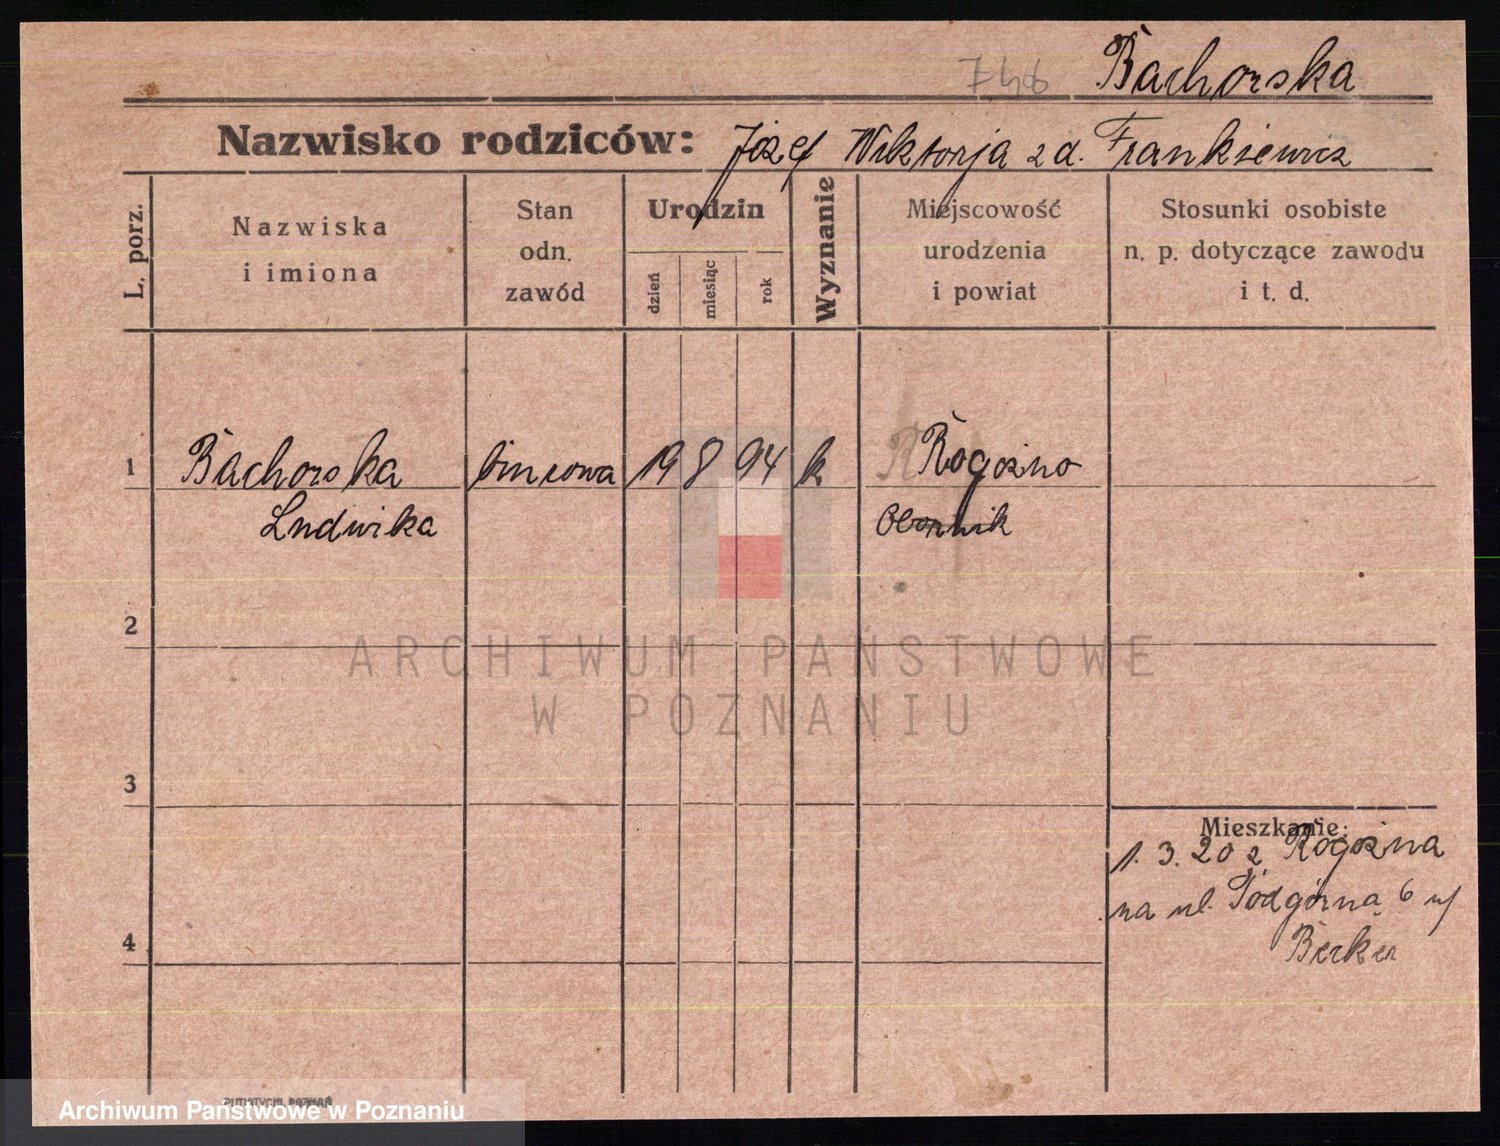 746 Bachorska
Nazwisko rodziców: Józef Wiktorja z d. Frankiewicz
L. porz.
Nazwiska
i imiona
Stan
odn.
zawód
Urodzin
dzień
miesiąc
rok
Wyznanie
Miejscowość
urodzenia
i powiat
Stosunki osobiste
n. p. dotyczące zawodu
i t. d.
1 Bachorska 19 8 94 k Rogoźno
Ludwika Obornik
2
ARCHIWUM PAŃSTWOWE
W POZNANIU
3
Mieszkanie:
1. 3. 20 z Rogoźna
na ul. Podgórną 6
4
Archiwum Państwowe w Poznaniu